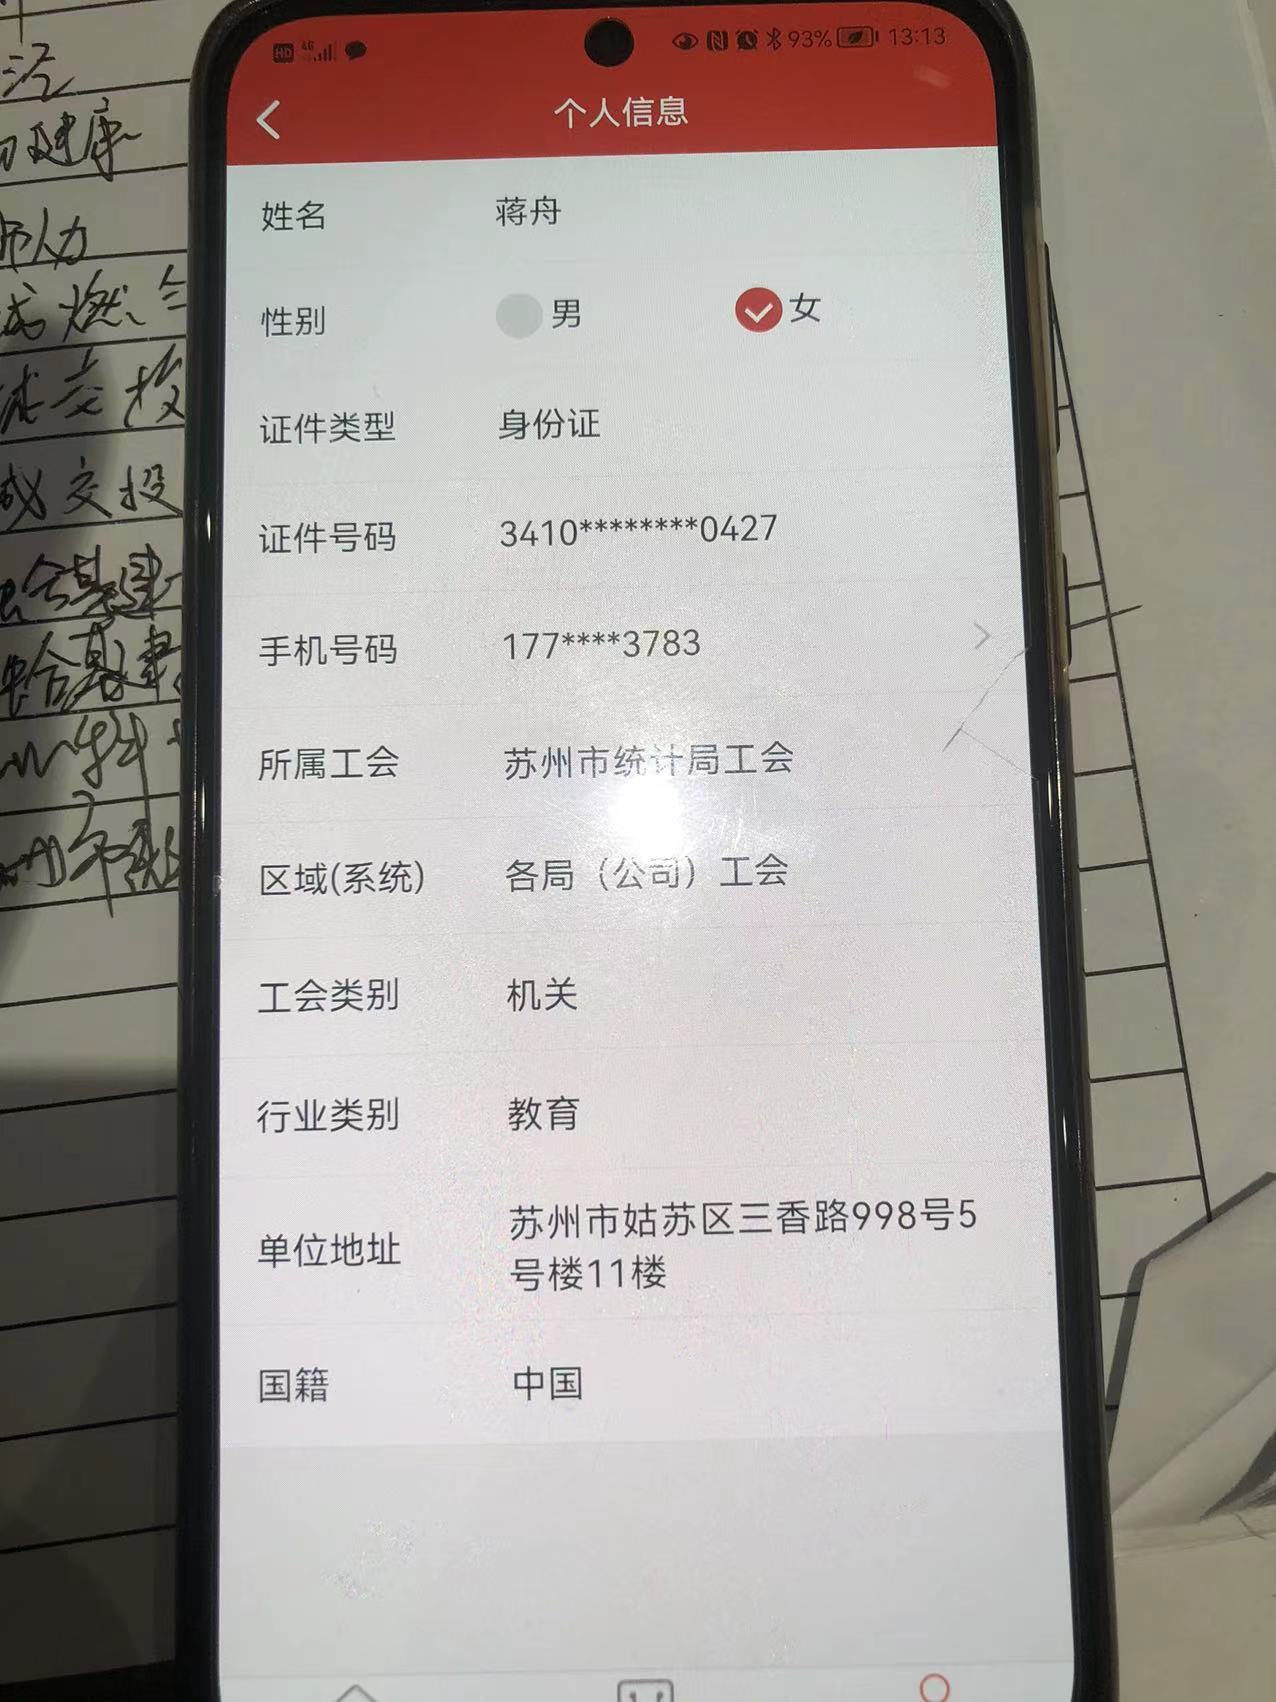 HD 4G 93% 13:13
个人信息
姓名 蒋舟
性别 男 女
证件类型 身份证
证件号码 3410********0427
手机号码 177****3783
所属工会 苏州市统计局工会
区域(系统) 各局（公司）工会
工会类别 机关
行业类别 教育
单位地址 苏州市姑苏区三香路998号5
号楼11楼
国籍 中国
健康
人力
燃
交投